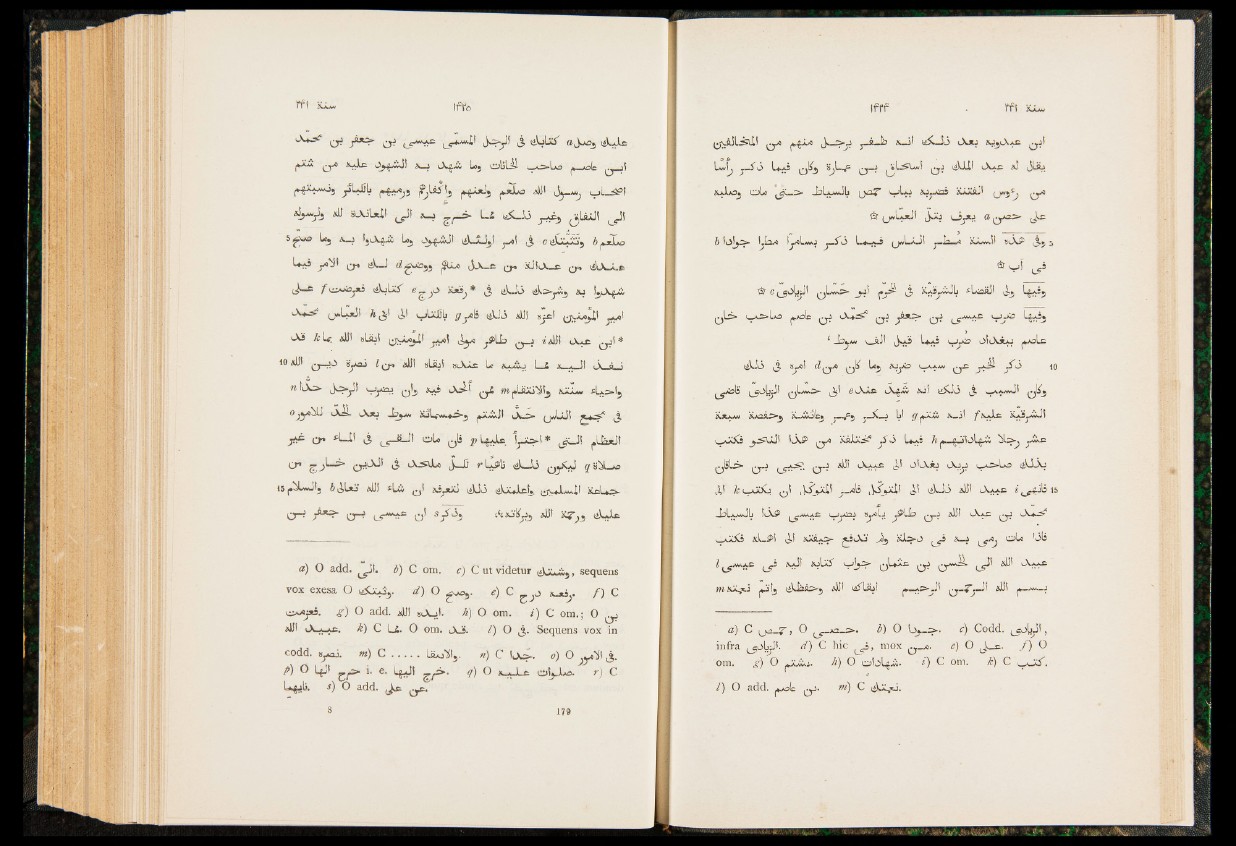 سنة ٢۴١ ١۴٢۴
ابن عبدويه بعد ذلك انه ظفر برجل منهم من المخالفين
يقال له عبد الله بن اسحاق بن عبارة وكان فيما ذكر رأسًا
من رءوس الفتنة فضربه بباب حمص بالسياط حتى مات وصلبه
على حصن a يعرف بتل العباس ۞
5 وفى هذه السنة مُطر الناس فيما ذكر بسامرا مطرا جوادا b
فى آب ۞
وفيها ولى القضاء بالشرقية فى المحرم ابو حسان الزيادى c ۞
وفيها ضرب عيسى بن جعفر بن محمد بن عاصم صاحب خان
عاصم ببغداد ضُرب فيما قيل الف سوط
10 ذكر الخبر عن سبب ضربه وما كان من d امره فى ذلك
وكان السبب فى ذلك انه شهد عند e ابى حسان الزيادى قاضى
الشرقية عليه f انه شتم g ابا بكر وعمر وعائشة وحفصة سبعة
عشر رجلا شهاداتهم h فيما ذكر مختلفة من هذا النحو فكتب
بذلك صاحب بريد بغداد الى عبيد الله بن يحيى بن خاقان
15 فانهى i عبيد الله ذلك الى المتوكل فامر المتوكل ان يكتب k الى
محمد بن عبد الله بن طاهر يأمره بضرب عيسى هذا بالسياط
فاذا مات رمى به فى دجلة ولم تدفع جيفته الى اهله فكتب
عبيد الله الى الحسن بن عثمان جواب كتابه اليه فى عيسى l
بسم الله الرحمن الرحيم ابقاك الله وحفظك واتم نعمته m
a) C حمص, O حصى. b) O جودا. c) Codd. الزيادى,
infra الزيادى. d) C hic فى, mox من. e) O على. f) O
om. g) O يشتم. h) O شهادات. i) C om. k) C كتب.
l) O add. بن عاصم. m) C نعمتك.
سنة ٢۴١ ١۴٢٥
عليك وصل a كتابك فى الرجل المسمى عيسى بن جعفر بن محمد
ابن عاصم صاحب الخانات وما شهد به الشهود عليه من شتم
اصحاب رسول الله صلعم ولعنهم واكفارهم ورميهم بالكبائر ونسبتهم
الى النفاق وغير ذلك مما خرج به الى المعاندة لله ولرسوله
5 صلعم b وتثبتك c فى امر اولئك الشهود وما شهدوا به وما صح
عندك من عدالة من عدل منهم ووضح d لك من الامر فيما
شهدوا به وشرحك ذلك فى *رقعة درج e كتابك فعرضت f على
امير المؤمنين اعزه الله ذلك فامر g بالكتاب الى ابى h العباس محمد
*ابن عبد الله i بن طاهر مولى امير المؤمنين ابقاه الله بما k قد
10 نفذ اليه مما يشبه ما عنده ابقاه الله من l نصرة دين الله
واحياء سنته والانتقام m ممن الحد فيه وان يضرب الرجل حدا n
فى مجمع الناس حد الشتم وخمسمائة سوط بعد الحد للامور o
العظام التى *اجترأ عليها p فان مات القى فى الماء من غير
صلاة q ليكون ذلك ناهيا r لكل ملحد فى الدين خارج من
15 جماعة المسلمين واعلمتك ذلك لتعرفه ان شاء الله تعالى b والسلام
عليك ورحمة الله وبركاته، وذكر s ان عيسى بن جعفر بن
a) O add. الى. b) C om. c) C ut videtur وشنتك, sequens
vox exesa O وثبتك. d) O وصح. e) C رفعه درج. f) C
فعزمت. g) O add. ايده الله. h) O om. i) C om.; O بن
عبيد الله. k) C لما. O om. قد. l) O فى. Sequens vox in
codd. نصره. m) C . . . . . والانتقا. n) C جدا. o) O فى الامور.
p) O خرج الها i. e. خرج اليها. q) O صلوات عليه. r) C
ناهيها. s) O add. عن على.
8 179